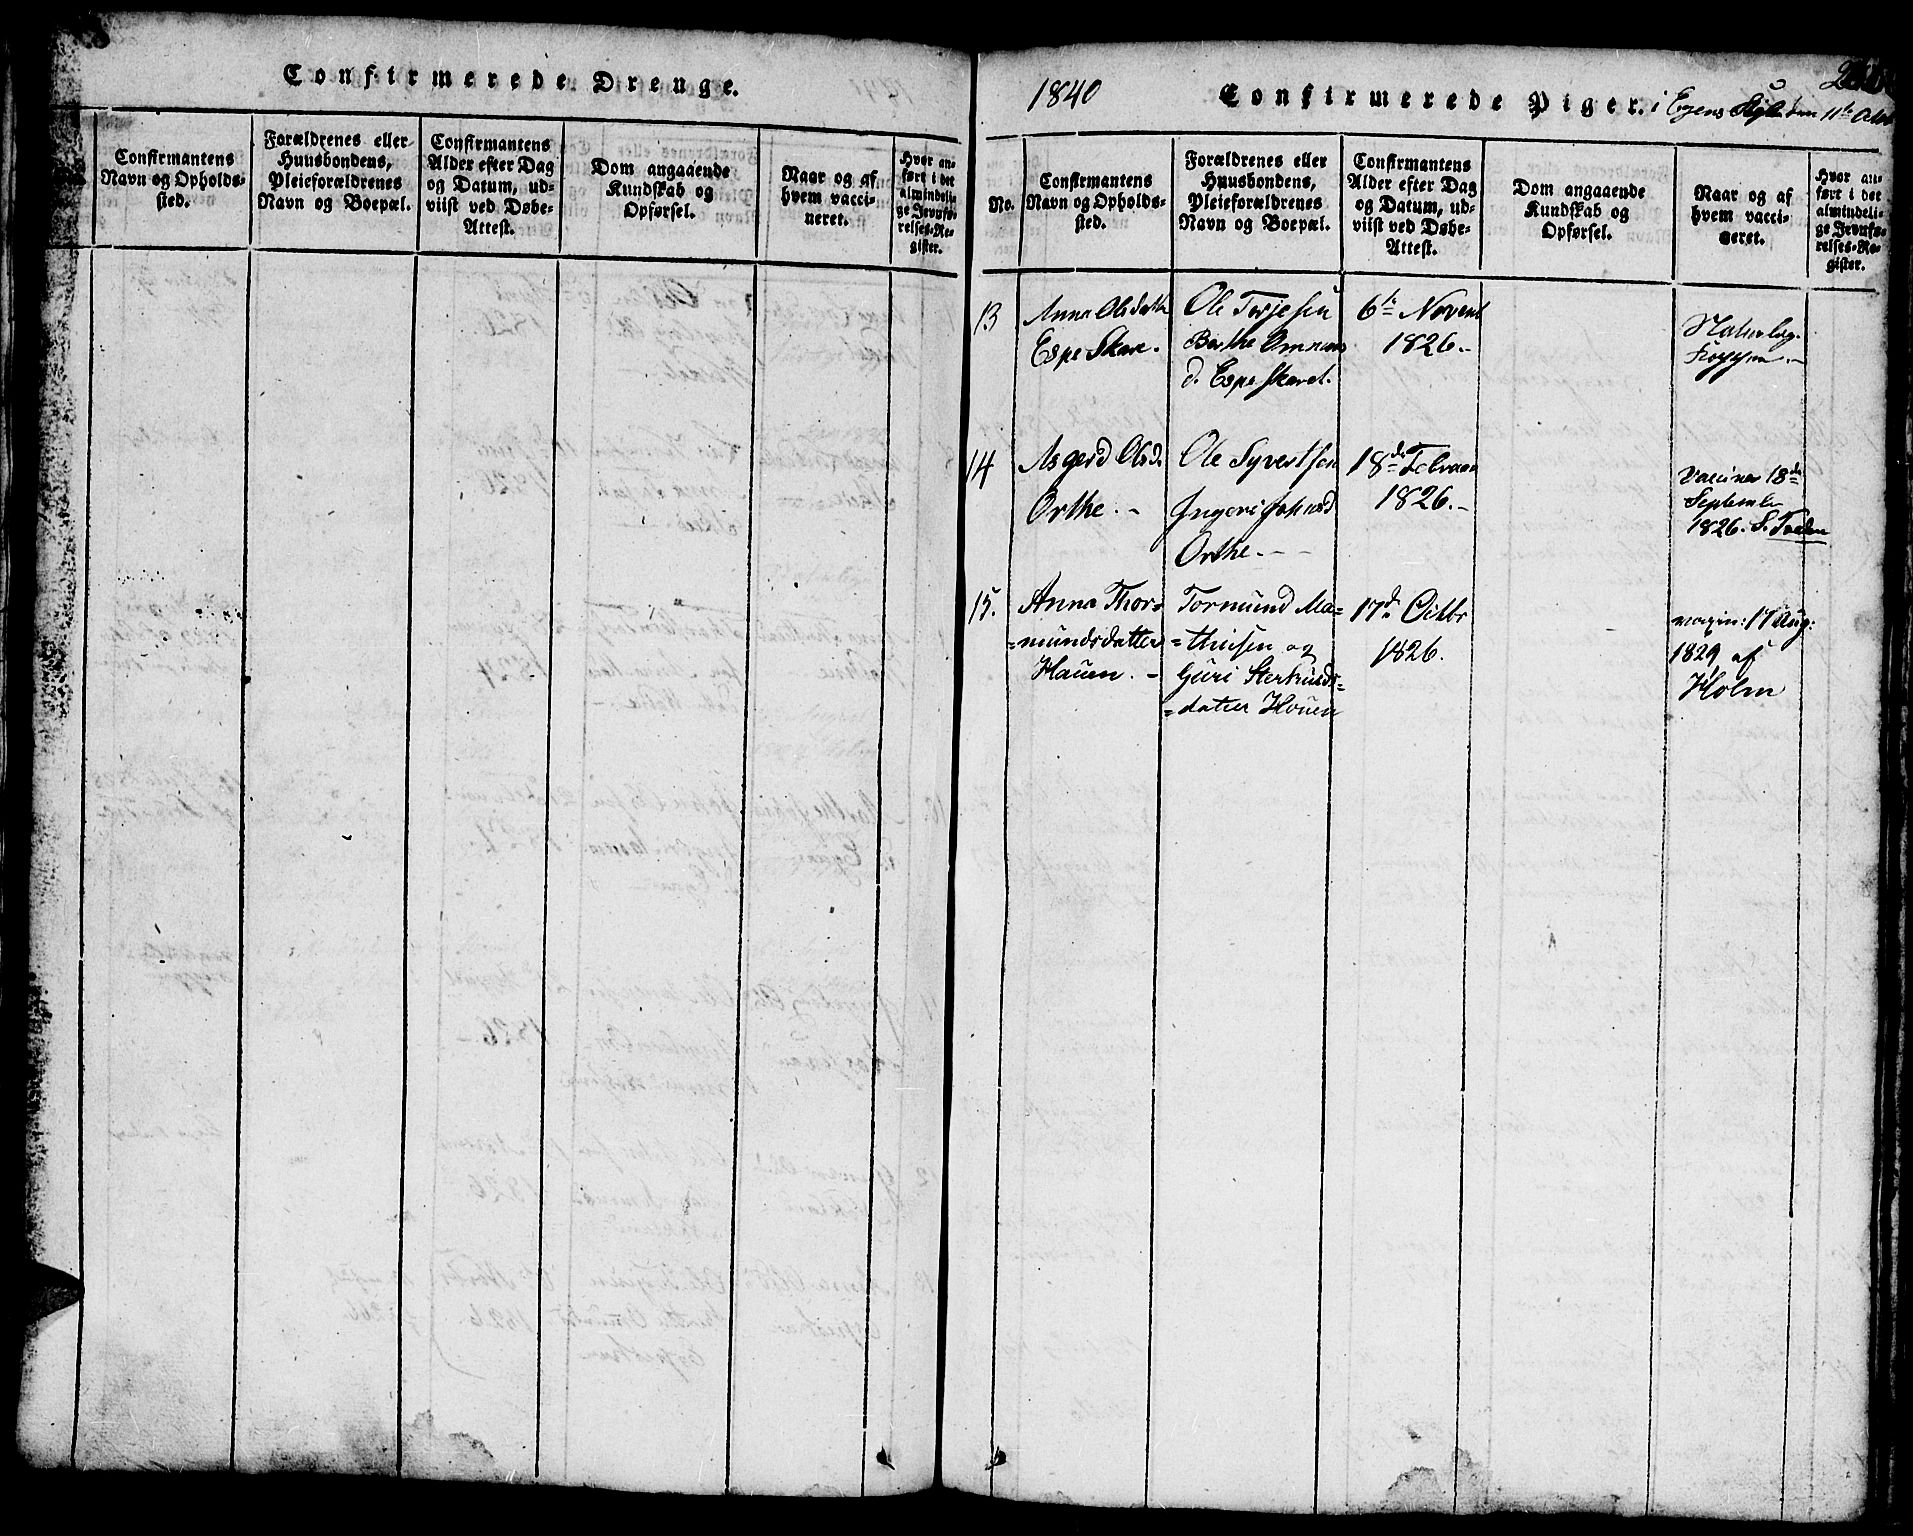 Confirmerede Drenge.
Confirmantens
Navn og Opholds-
sted.
Forældrenes eller
Huusbondens,
Pleieforældrenes
Navn og Boepæl.
Confirmantens
Alder efter Dag
og Datum, ud-
viist ved Døbe-
Attest.
Dom angaaende
Kundskab og
Opførsel.
Naar og af
hvem vacci-
neret.
Hvor an-
ført i det
almindeli-
ge Jevnfø-
relses-Re-
gister.
1840
Confirmerede Piger. i
den 11te
No.
Confirmantens
Navn og Opholds-
sted.
Forældrenes eller
Huusbondens,
Pleieforældrenes
Navn og Boepæl.
Confirmantens
Alder efter Dag
og Datum, ud-
viist ved Døbe-
Attest.
Dom angaaende
Kundskab og
Opførsel.
Naar og af
hvem vacci-
neret.
Hvor an-
ført i det
almindeli-
ge Jevnfø-
relses-Re-
gister.
13
Anna Olsdatter
Espe Skare.
Ole Terjesen
Berthe
d. Espeskaret.
6te Novemb
1826.-
Naturlig.
Kopper.-
14
Asgerd Olsd.
Orthe. -
Ole Syvertsen
Ingeri Johnsd
Orthe. - -
18de Februar
1826.-
Vaccineret 18de
September
1826. S.
15.
Anna Thor-
=mundsdatter
Hauen. -
Tormund Ma=
=thisen og
Guri
=datter Houen
17de Octbr
1826.
vaxin: 17 Aug:
1829 af
Holm